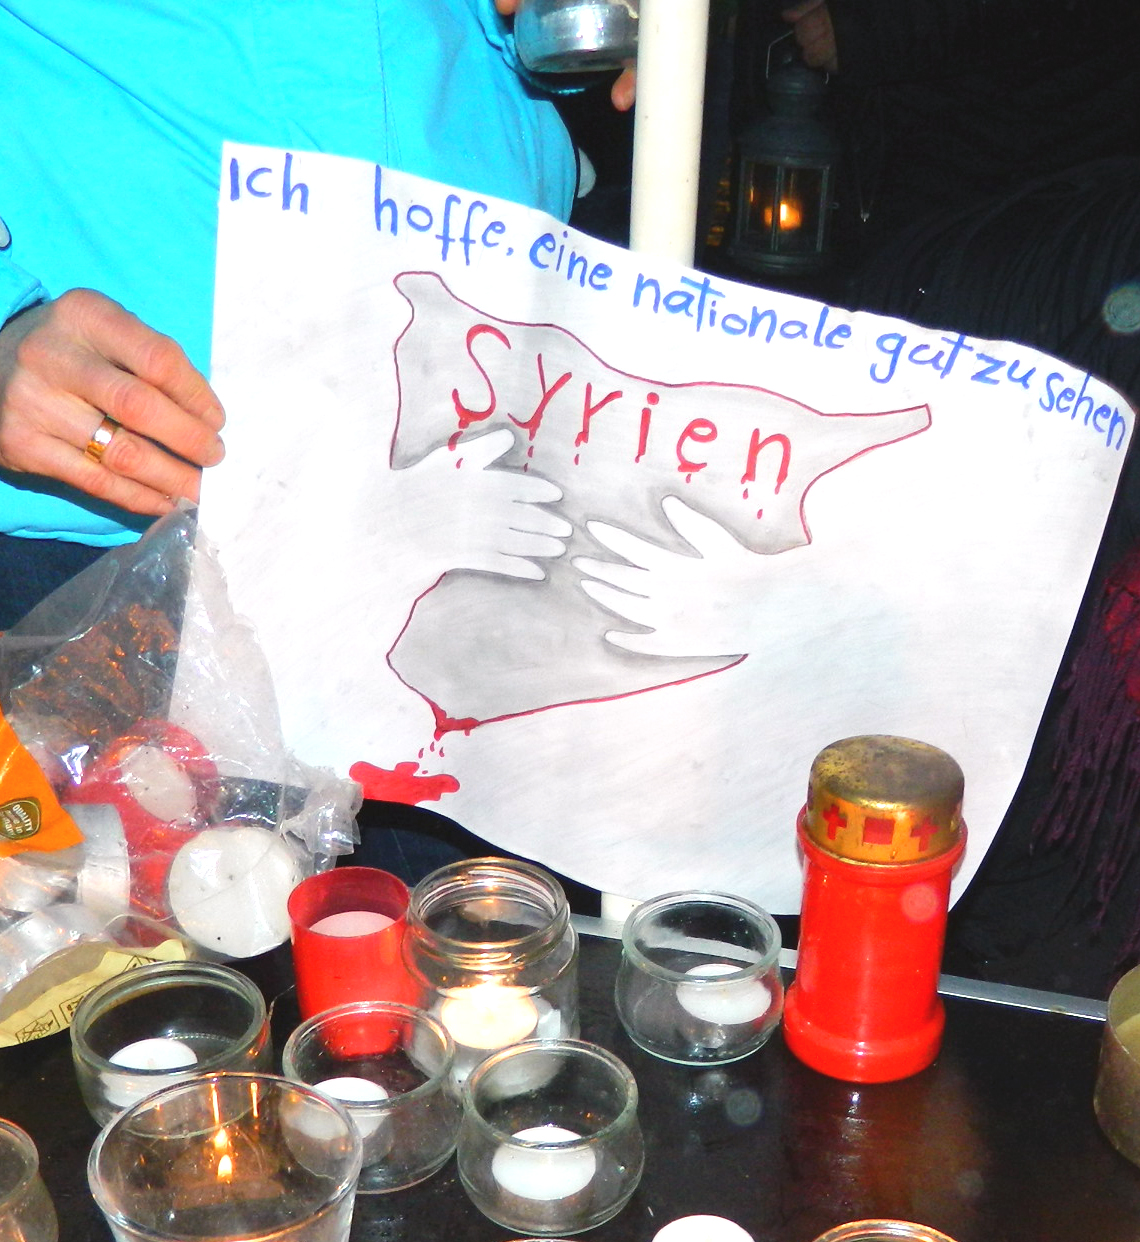 Ich hoffe, eine nationale gut zu sehen
Syrien
QUALITY